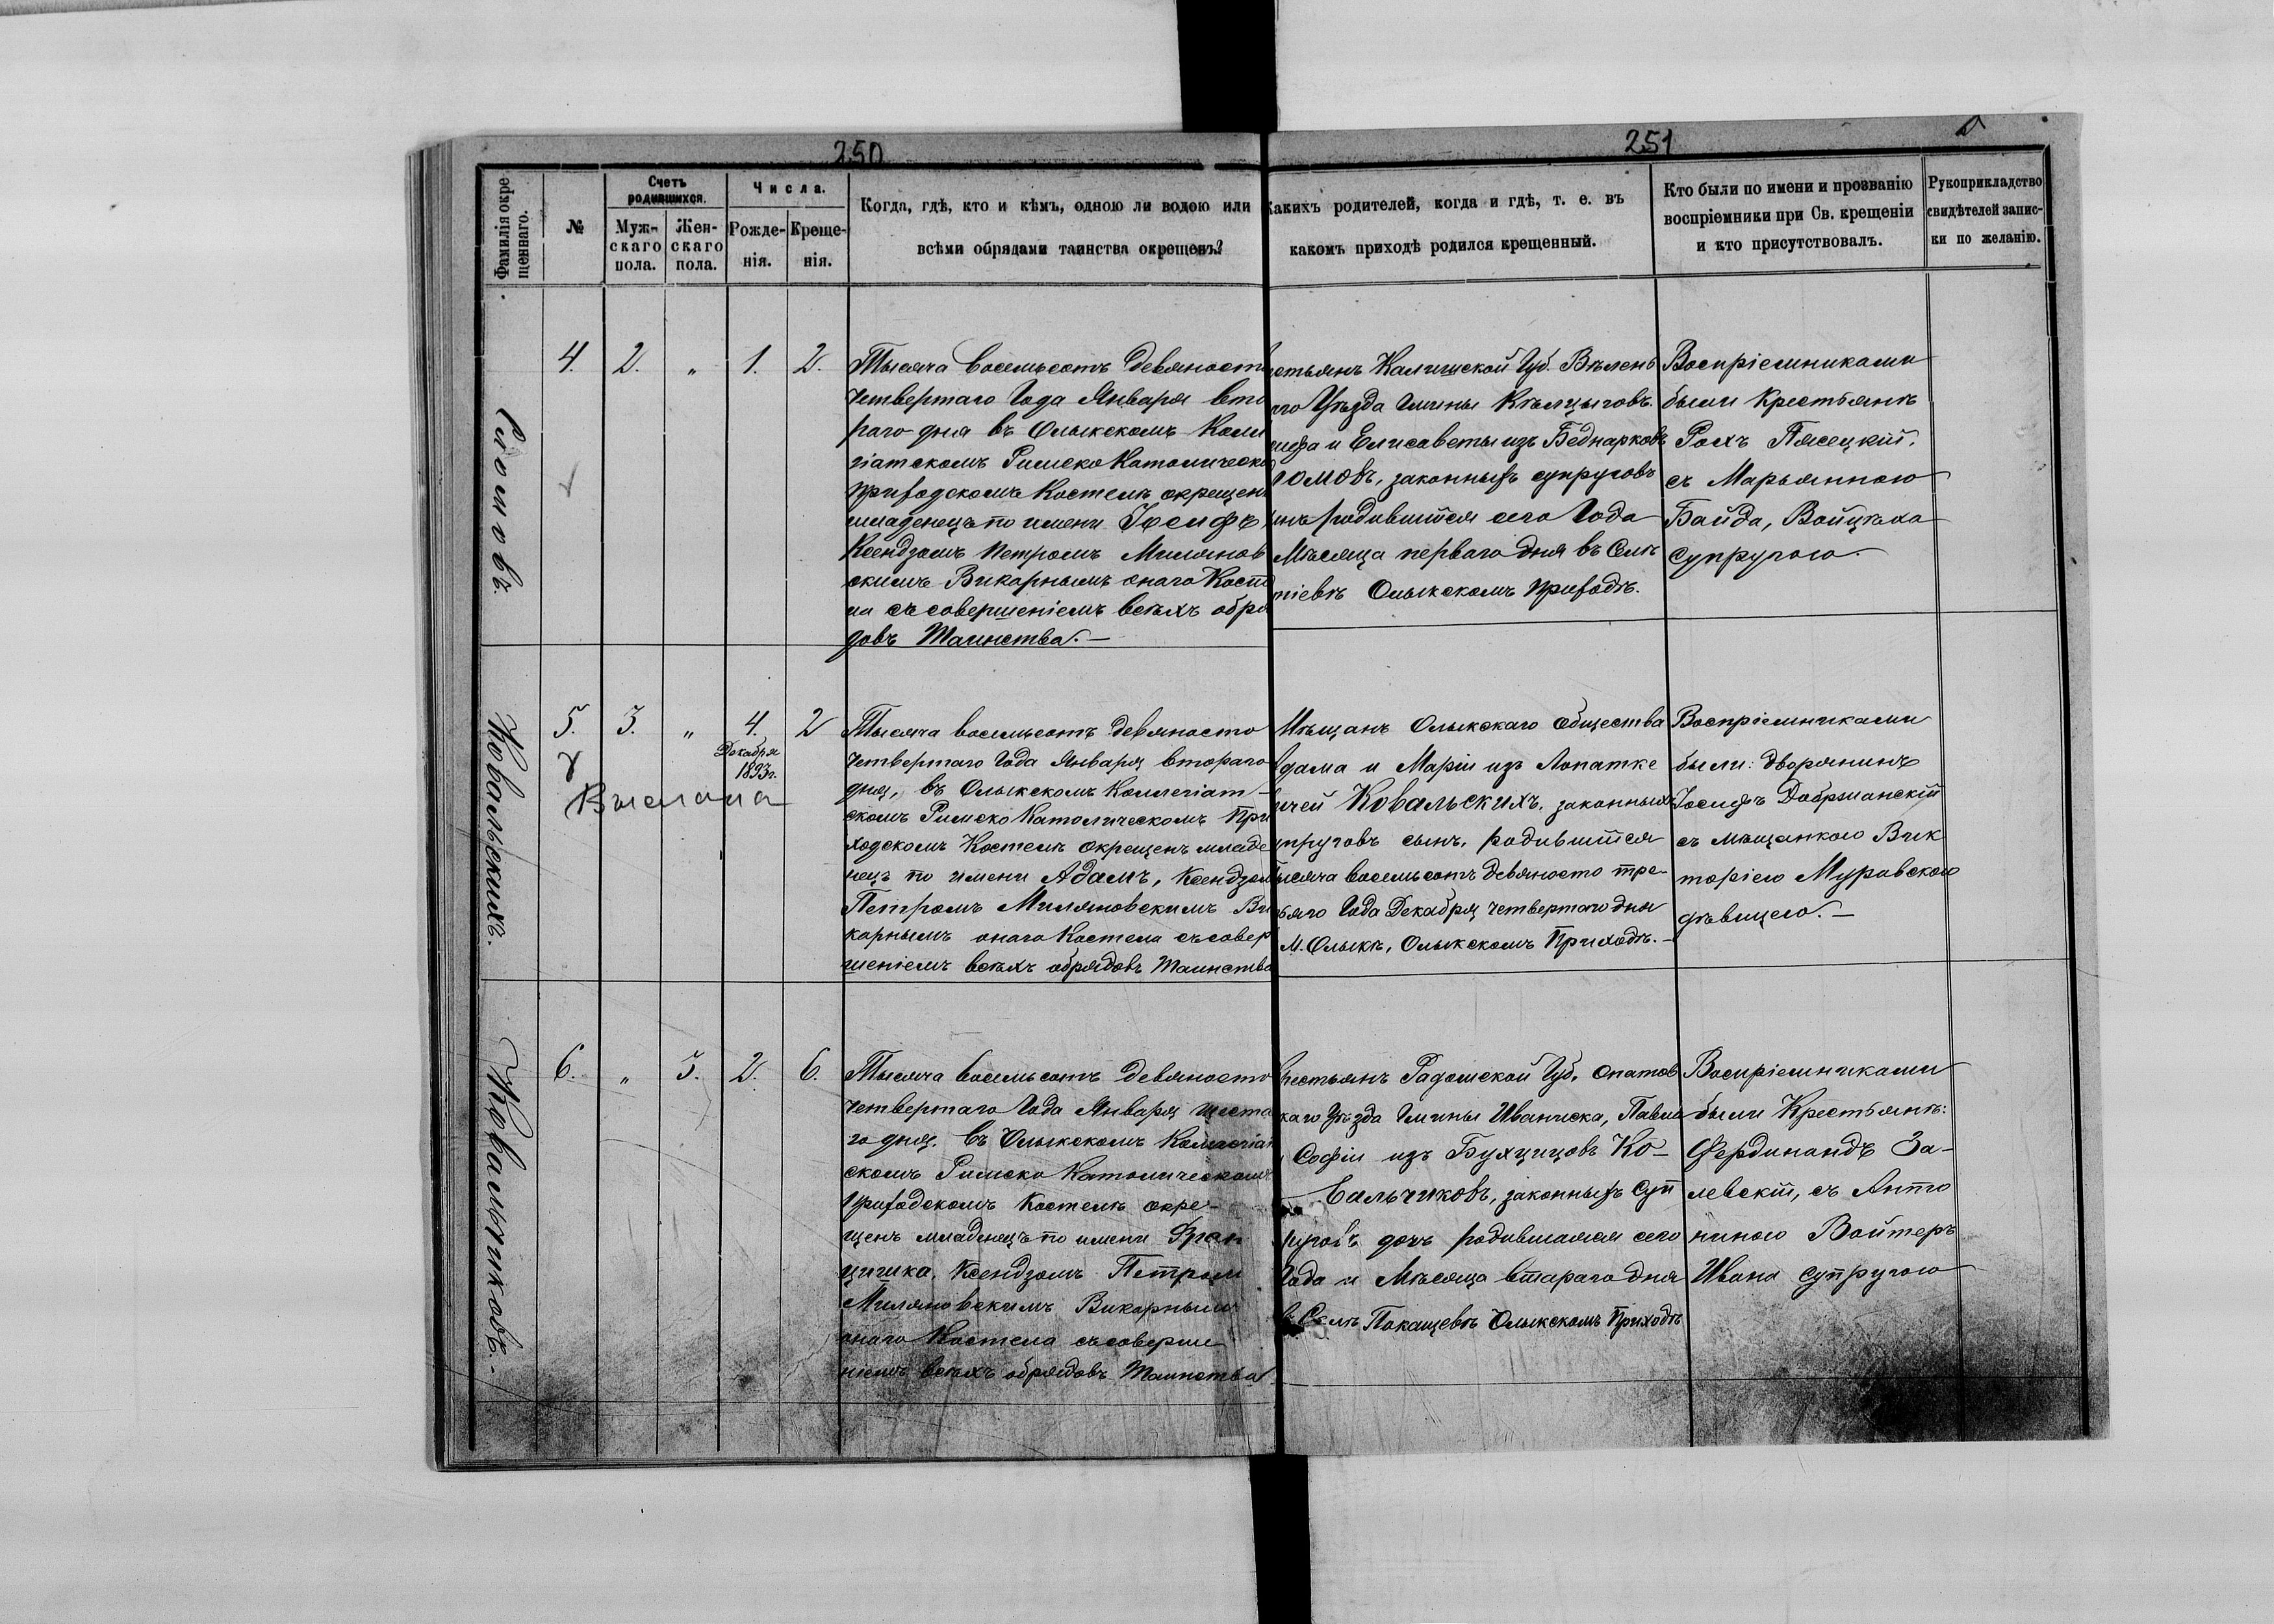 250
251
Фамилія окре-
щеннаго.
№
Счетъ
родившихся.
Муж-
скаго
пола.
Жен-
скаго
пола.
Числа.
Рожде-
нія.
Креще-
нія.
Когда, гдѣ, кто и кѣмъ, одною ли водою или
всѣми обрядами таинства окрещенъ?
Какихъ родителей, когда и гдѣ, т. е. въ
какомъ приходѣ родился крещенный.
Кто были по имени и прозванію
воспріемники при Св. крещеніи
и кто присутствовалъ.
Рукоприкладство
свидѣтелей запис-
ки по желанію.
4. 2. „ 1. 2.
Тысяча восемьсотъ девяносто
четвертаго Года Января вто
раго дня въ Олыкскомъ Колле
гіатскомъ Римско Католическо
приходскомъ Костелѣ окрещенъ
младенецъ по имени Іосифъ
Ксендзомъ Петромъ Милянов
скимъ Викарнымъ онаго Косте
ла съ совершеніемъ всѣхъ обря
довъ Таинства.—
стьянъ Калишской Губ. Вѣлень
аго Уѣзда Гмины Кѣлцыговъ.
сифа и Елисаветы изъ Беднарковъ
омовъ, законныхъ супруговъ
родившійся сего Года
Мѣсяца перваго дня въ Селѣ
Олыкскомъ приходѣ.
Воспріемниками
были Крестьянѣ
Рохъ Пясецкій,
съ Марьянною
Байда, Войцѣха
супругою.
Ковальскихъ.
5. 3. „ 4. 2
Декабря
1893г.
Выслана
Тысяча восемьсотъ девяносто
четвертаго Года Января втораго
дня, въ Олыкскомъ Коллегіат-
скомъ Римско Католическомъ При
ходскомъ Костелѣ окрещенъ младе
нецъ по имени Адамъ, Ксендзом
Петромъ Миляновскимъ Ви
карнымъ онаго Костела съ совер
шеніемъ всѣхъ обрядовъ Таинства
Мѣщанъ Олыкскаго Общества
Адама и Маріи изъ Лопатке
вичей Ковальскихъ, законныхъ
упруговъ сынъ, родившійся
тысяча восемьсотъ девяносто тре-
ьяго Года Декабря четвертаго дня
М. Олыкѣ, Олыкскомъ Приходѣ.—
Воспріемниками
были: дворянинъ
Іосифъ Добржанскій
съ мѣщанкою Вик
торіею Муравскою
дѣвицею.—
Ковальчиковъ.-
6. „ 3. 2. 6.
Тысяча восемьсотъ девяносто
четвертаго Года Января шеста
го дня, въ Олыкскомъ Коллегіат
скомъ Римско Католическомъ
Приходскомъ Костелѣ окре-
щенъ младенецъ по имени Фран
цишка, Ксендзомъ Петромъ
Миляновскимъ Викарнымъ
онаго Костела съ соверше
ніемъ всѣхъ обрядовъ Таинства
Крестьянъ Радомской Губ. Опатов
скаго Уѣзда Гмины Иваниска, Павла
Софіи изъ Бухцицовъ Ко-
вальчиковъ, законныхъ Суп
руговъ дочь родившаяся сего
Года и Мѣсяца втараго дня
въ Селѣ Покащевѣ Олыкскомъ Приходѣ
Воспріемниками
были Крестьянѣ:
Фердинандъ За-
левскій, съ Анто
ниною Войтеръ
Ивана супругою